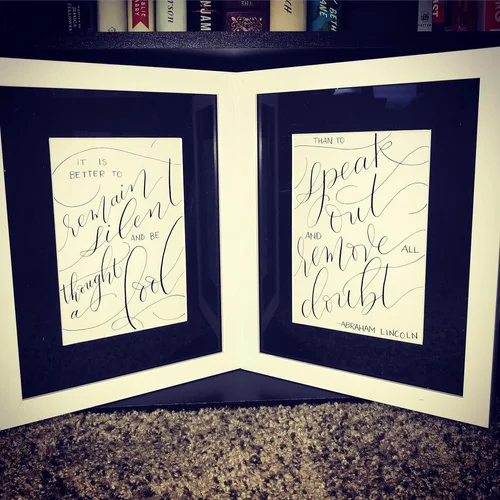 IT IS
BETTER TO
remain
silent
AND BE
thought
a fool
THAN TO
speak
out
AND
remove ALL
doubt
-ABRAHAM LINCOLN